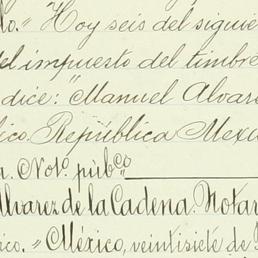 lo. " Hoy seis del siguie
del impuesto del timbre
dice: "Manuel Alvare
ico. República Mexi
a. Not.º púb.co
Alvarez de la Cadena. Notar
ico. " México, veintisiete de